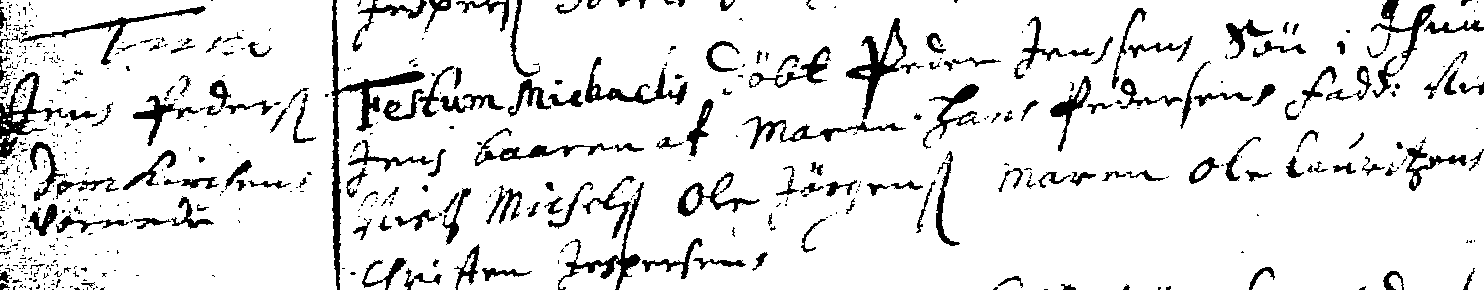 Jens Pederß
Domkirchens
Vornede
Festum Michaelis Döbt Peder Jenssens Sön i
Jens baaren af Maren Hans Pedersens fadd:
Niels Michelß Ole Jörgenß Maren Ole Lauritzens
Christen Jespersens